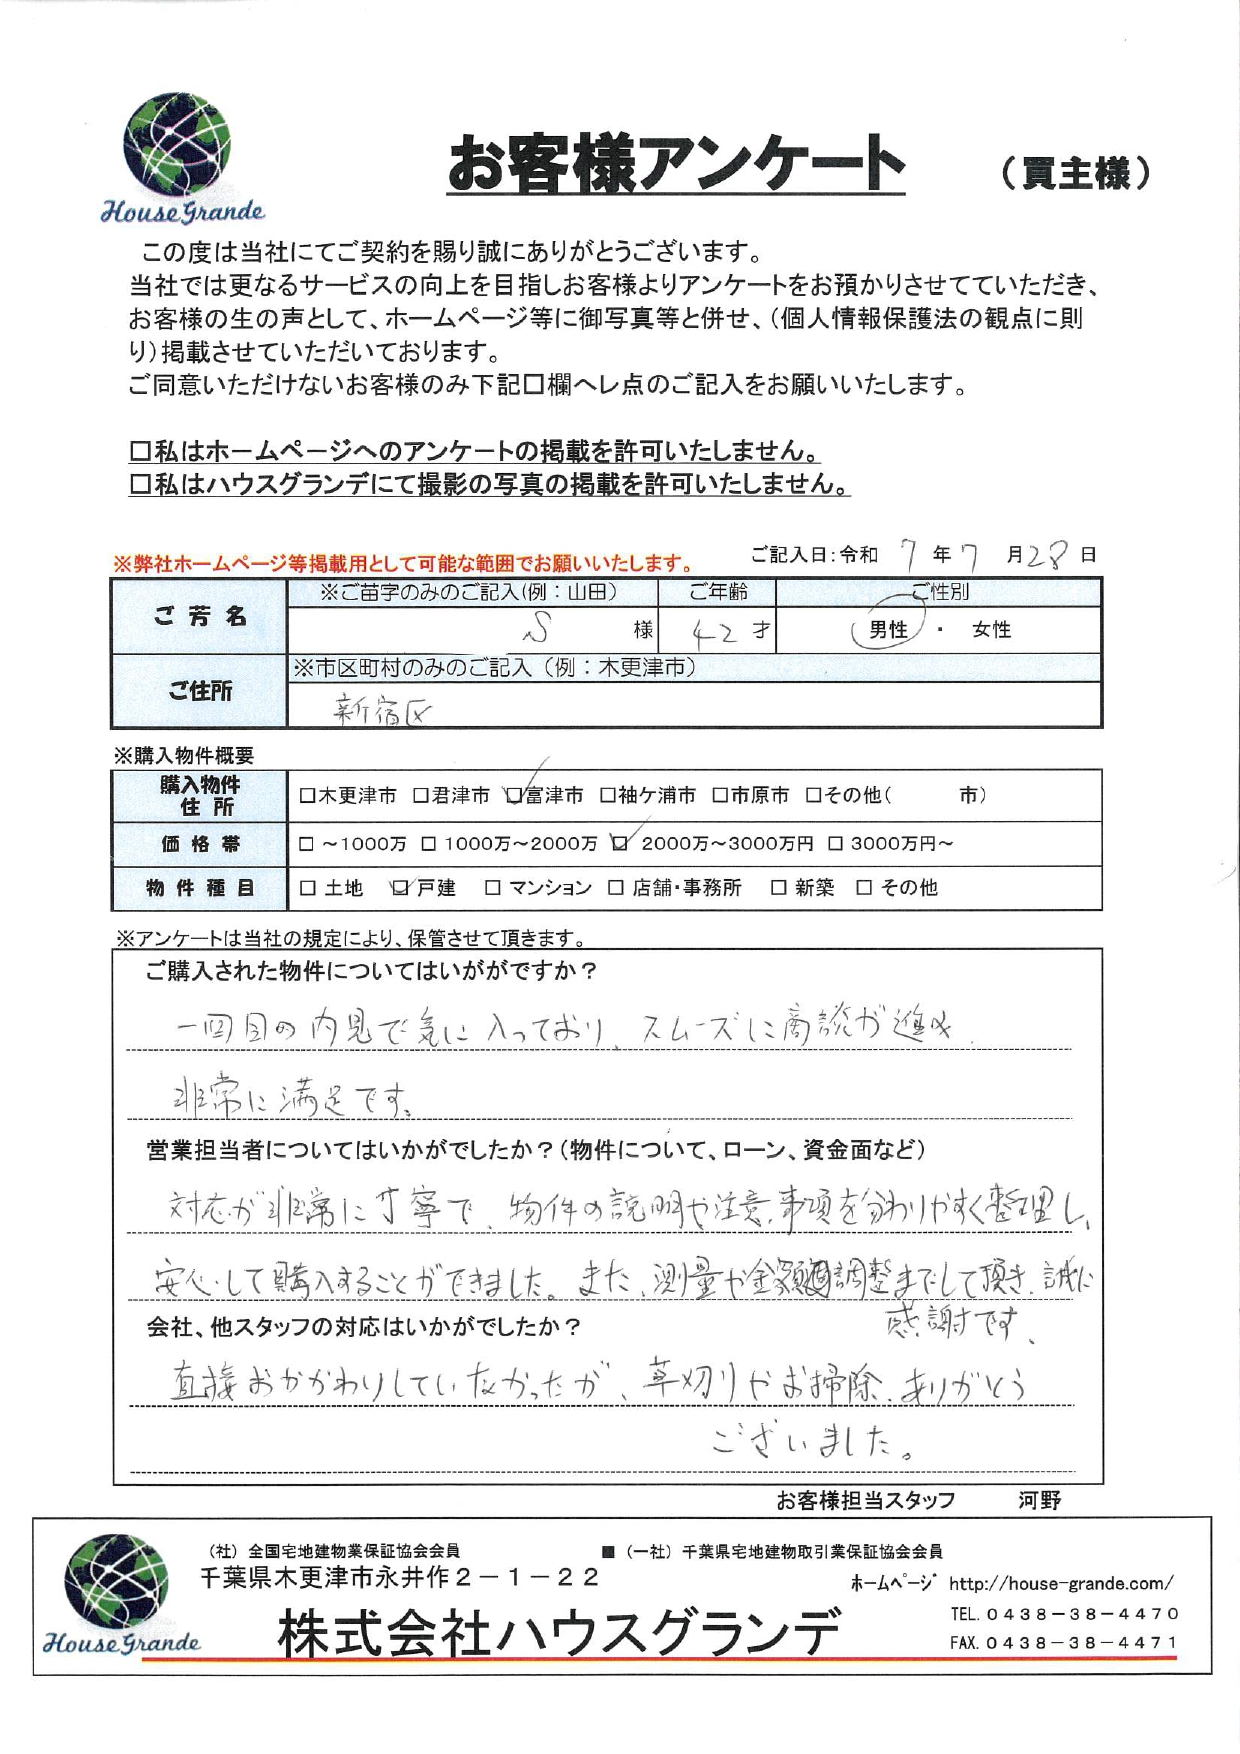 House Grande
お客様アンケート （買主様）
この度は当社にてご契約を賜り誠にありがとうございます。
当社では更なるサービスの向上を目指しお客様よりアンケートをお預かりさせてていただき、
お客様の生の声として、ホームページ等に御写真等と併せ、（個人情報保護法の観点に則
り）掲載させていただいております。
ご同意いただけないお客様のみ下記□欄へレ点のご記入をお願いいたします。
□私はホームページへのアンケートの掲載を許可いたしません。
□私はハウスグランデにて撮影の写真の掲載を許可いたしません。
※弊社ホームページ等掲載用として可能な範囲でお願いいたします。 ご記入日：令和 7 年 7 月 28 日
ご芳名 ※ご苗字のみのご記入（例：山田） ご年齢 ご性別
S 様 42 才 男性 ・ 女性
ご住所 ※市区町村のみのご記入（例：木更津市）
新宿区
※購入物件概要
購入物件住所 □木更津市 □君津市 ☑富津市 □袖ケ浦市 □市原市 □その他（ 市）
価格帯 □ ～1000万 □ 1000万～2000万 ☑ 2000万～3000万円 □ 3000万円～
物件種目 □ 土地 ☑ 戸建 □ マンション □ 店舗・事務所 □ 新築 □ その他
※アンケートは当社の規定により、保管させて頂きます。
ご購入された物件についてはいががですか？
一回目の内見で気に入っており、スムーズに商談が進み
非常に満足です。
営業担当者についてはいかがでしたか？（物件について、ローン、資金面など）
対応が非常に丁寧で、物件の説明や注意事項を分わりやすく整理し、
安心して購入することができました。また、測量や金額調整までして頂き、誠に
感謝です、
会社、他スタッフの対応はいかがでしたか？
直接おかかわりしていなかったが、草切りやお掃除、ありがとう
ございました。
お客様担当スタッフ 河野
（社）全国宅地建物業保証協会会員 ■（一社）千葉県宅地建物取引業保証協会会員
千葉県木更津市永井作２－１－２２ ﾎｰﾑﾍﾟｰｼﾞ http://house-grande.com/
House Grande 株式会社ハウスグランデ
TEL.０４３８－３８－４４７０
FAX.０４３８－３８－４４７１